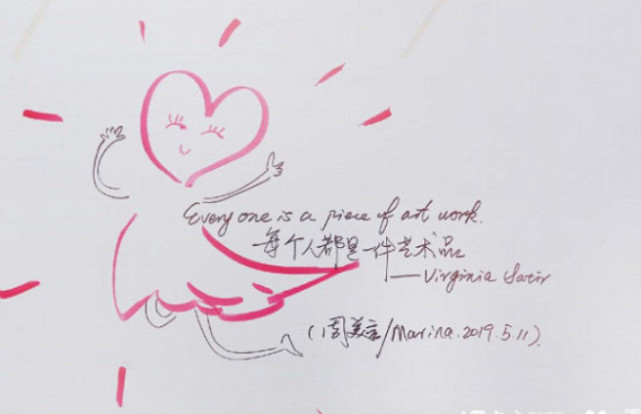 Every one is a piece of art work.
每个人都是一件艺术品
——Virginia Satir
(周美言/Marina.2019.5.11).